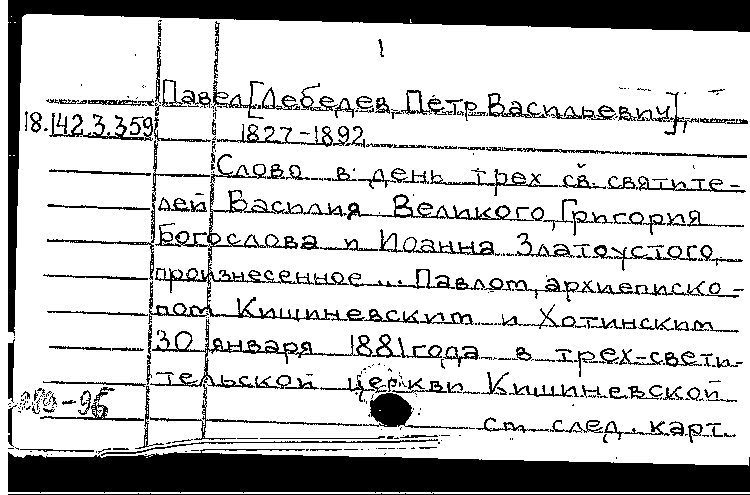 1
Павел [Лебедев, Петр Васильевич],
18.142.3.359
1827-1892
Слово в день трех св. святите-
лей Василия Великого, Григория
Богослова и Иоанна Златоустого,
произнесенное ... Павлом, архиеписко-
пом Кишиневским и Хотинским
30 января 1881 года в трех-свети-
тельской церкви Кишиневской
см. след. карт.